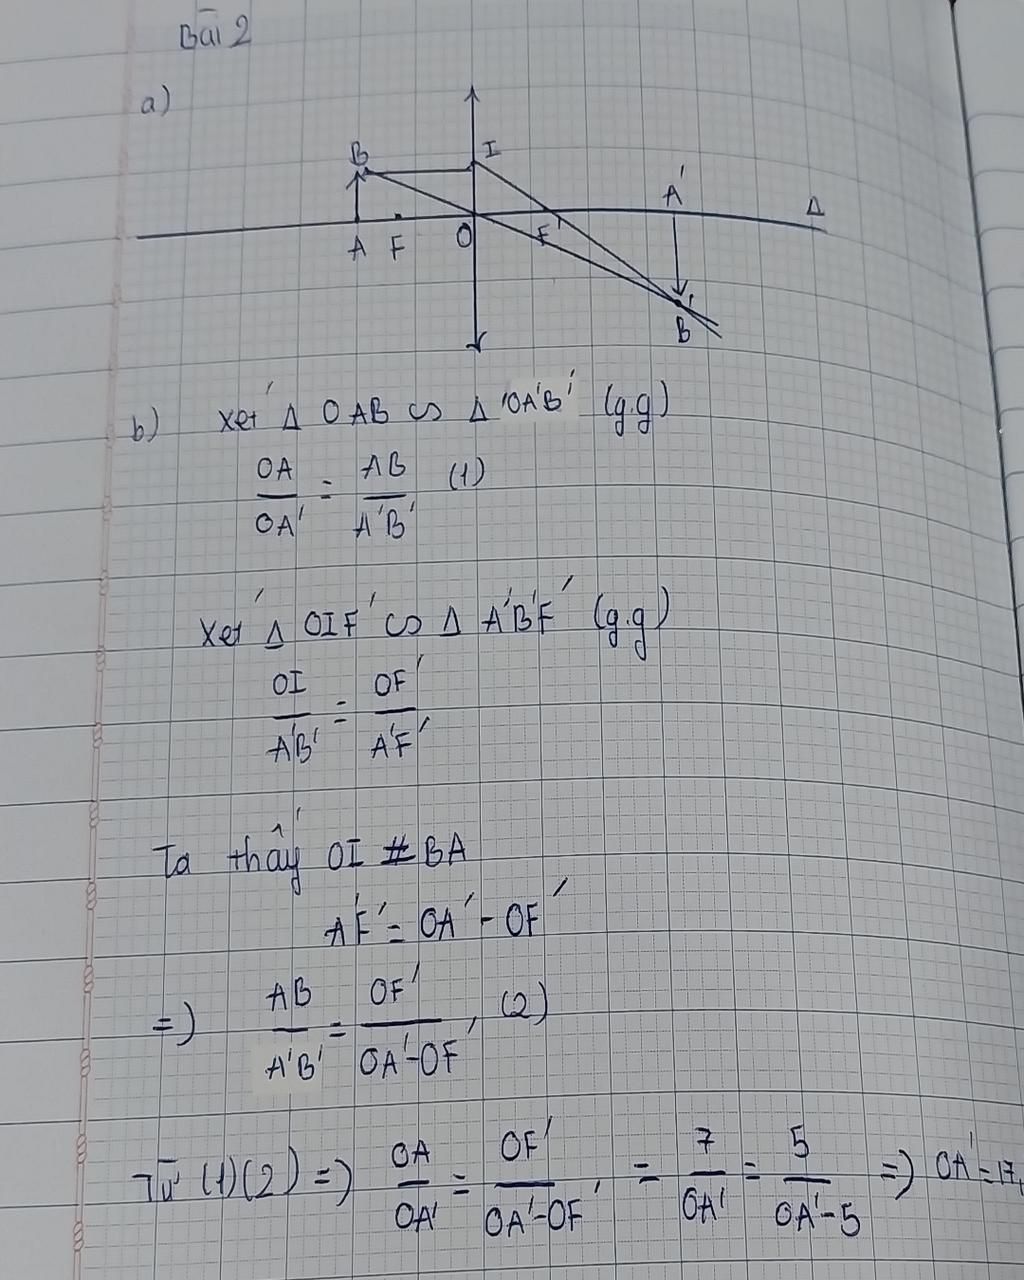 Bài 2
a)
B I A' Δ
A F O F'
B'
b) Xét Δ OAB ∽ Δ 'OA'B' (g.g)
OA/OA' = AB/A'B' (1)
Xét Δ OIF' ∽ Δ A'B'F' (g.g)
OI/A'B' = OF'/A'F'
Ta thấy OI # BA
A'F' = OA' - OF'
=) AB/A'B' = OF'/OA'-OF' (2)
Từ (1)(2) =) OA/OA' = OF'/OA'-OF' = 7/OA' = 5/OA'-5 =) OA' = 17,